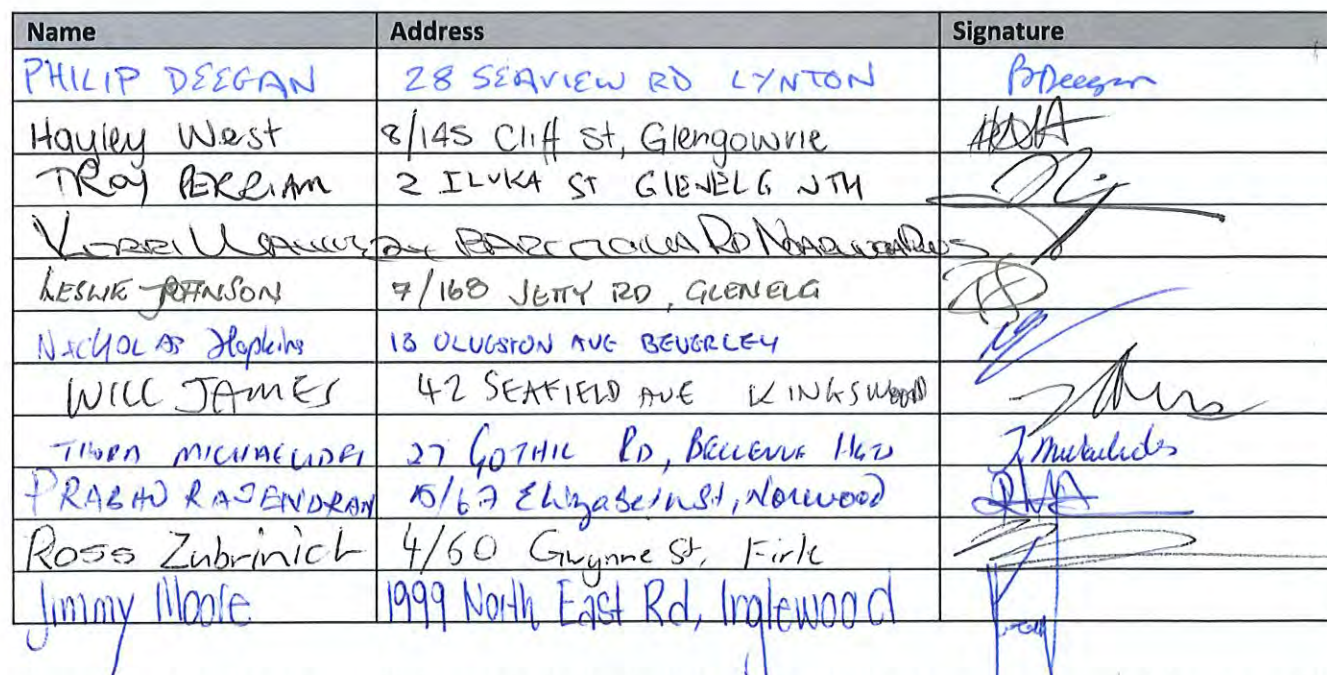 Name Address Signature
PHILIP DEEGAN 28 SEAVIEW RD LYNTON PDeegan
Hayley West 8/145 Cliff St, Glengowrie
TROY PERRIAM 2 ILUKA ST GLENELG NTH
RD
LESLIE JOHNSON 7/168 JETTY RD, GLENELG
NICHOLAS Hopkins AVE BEVERLEY
WILL JAMES 42 SEAFIELD AVE KINGSWOOD
MICHAELIDES 27 GOTHIC RD, BELLEVUE HGTS
PRABHU RAJENDRAN 15/67 Elizabeth St, Norwood
Ross Zubrinich 4/50 Gwynne St, Firle
Jimmy Moore 1999 North East Rd, Inglewood